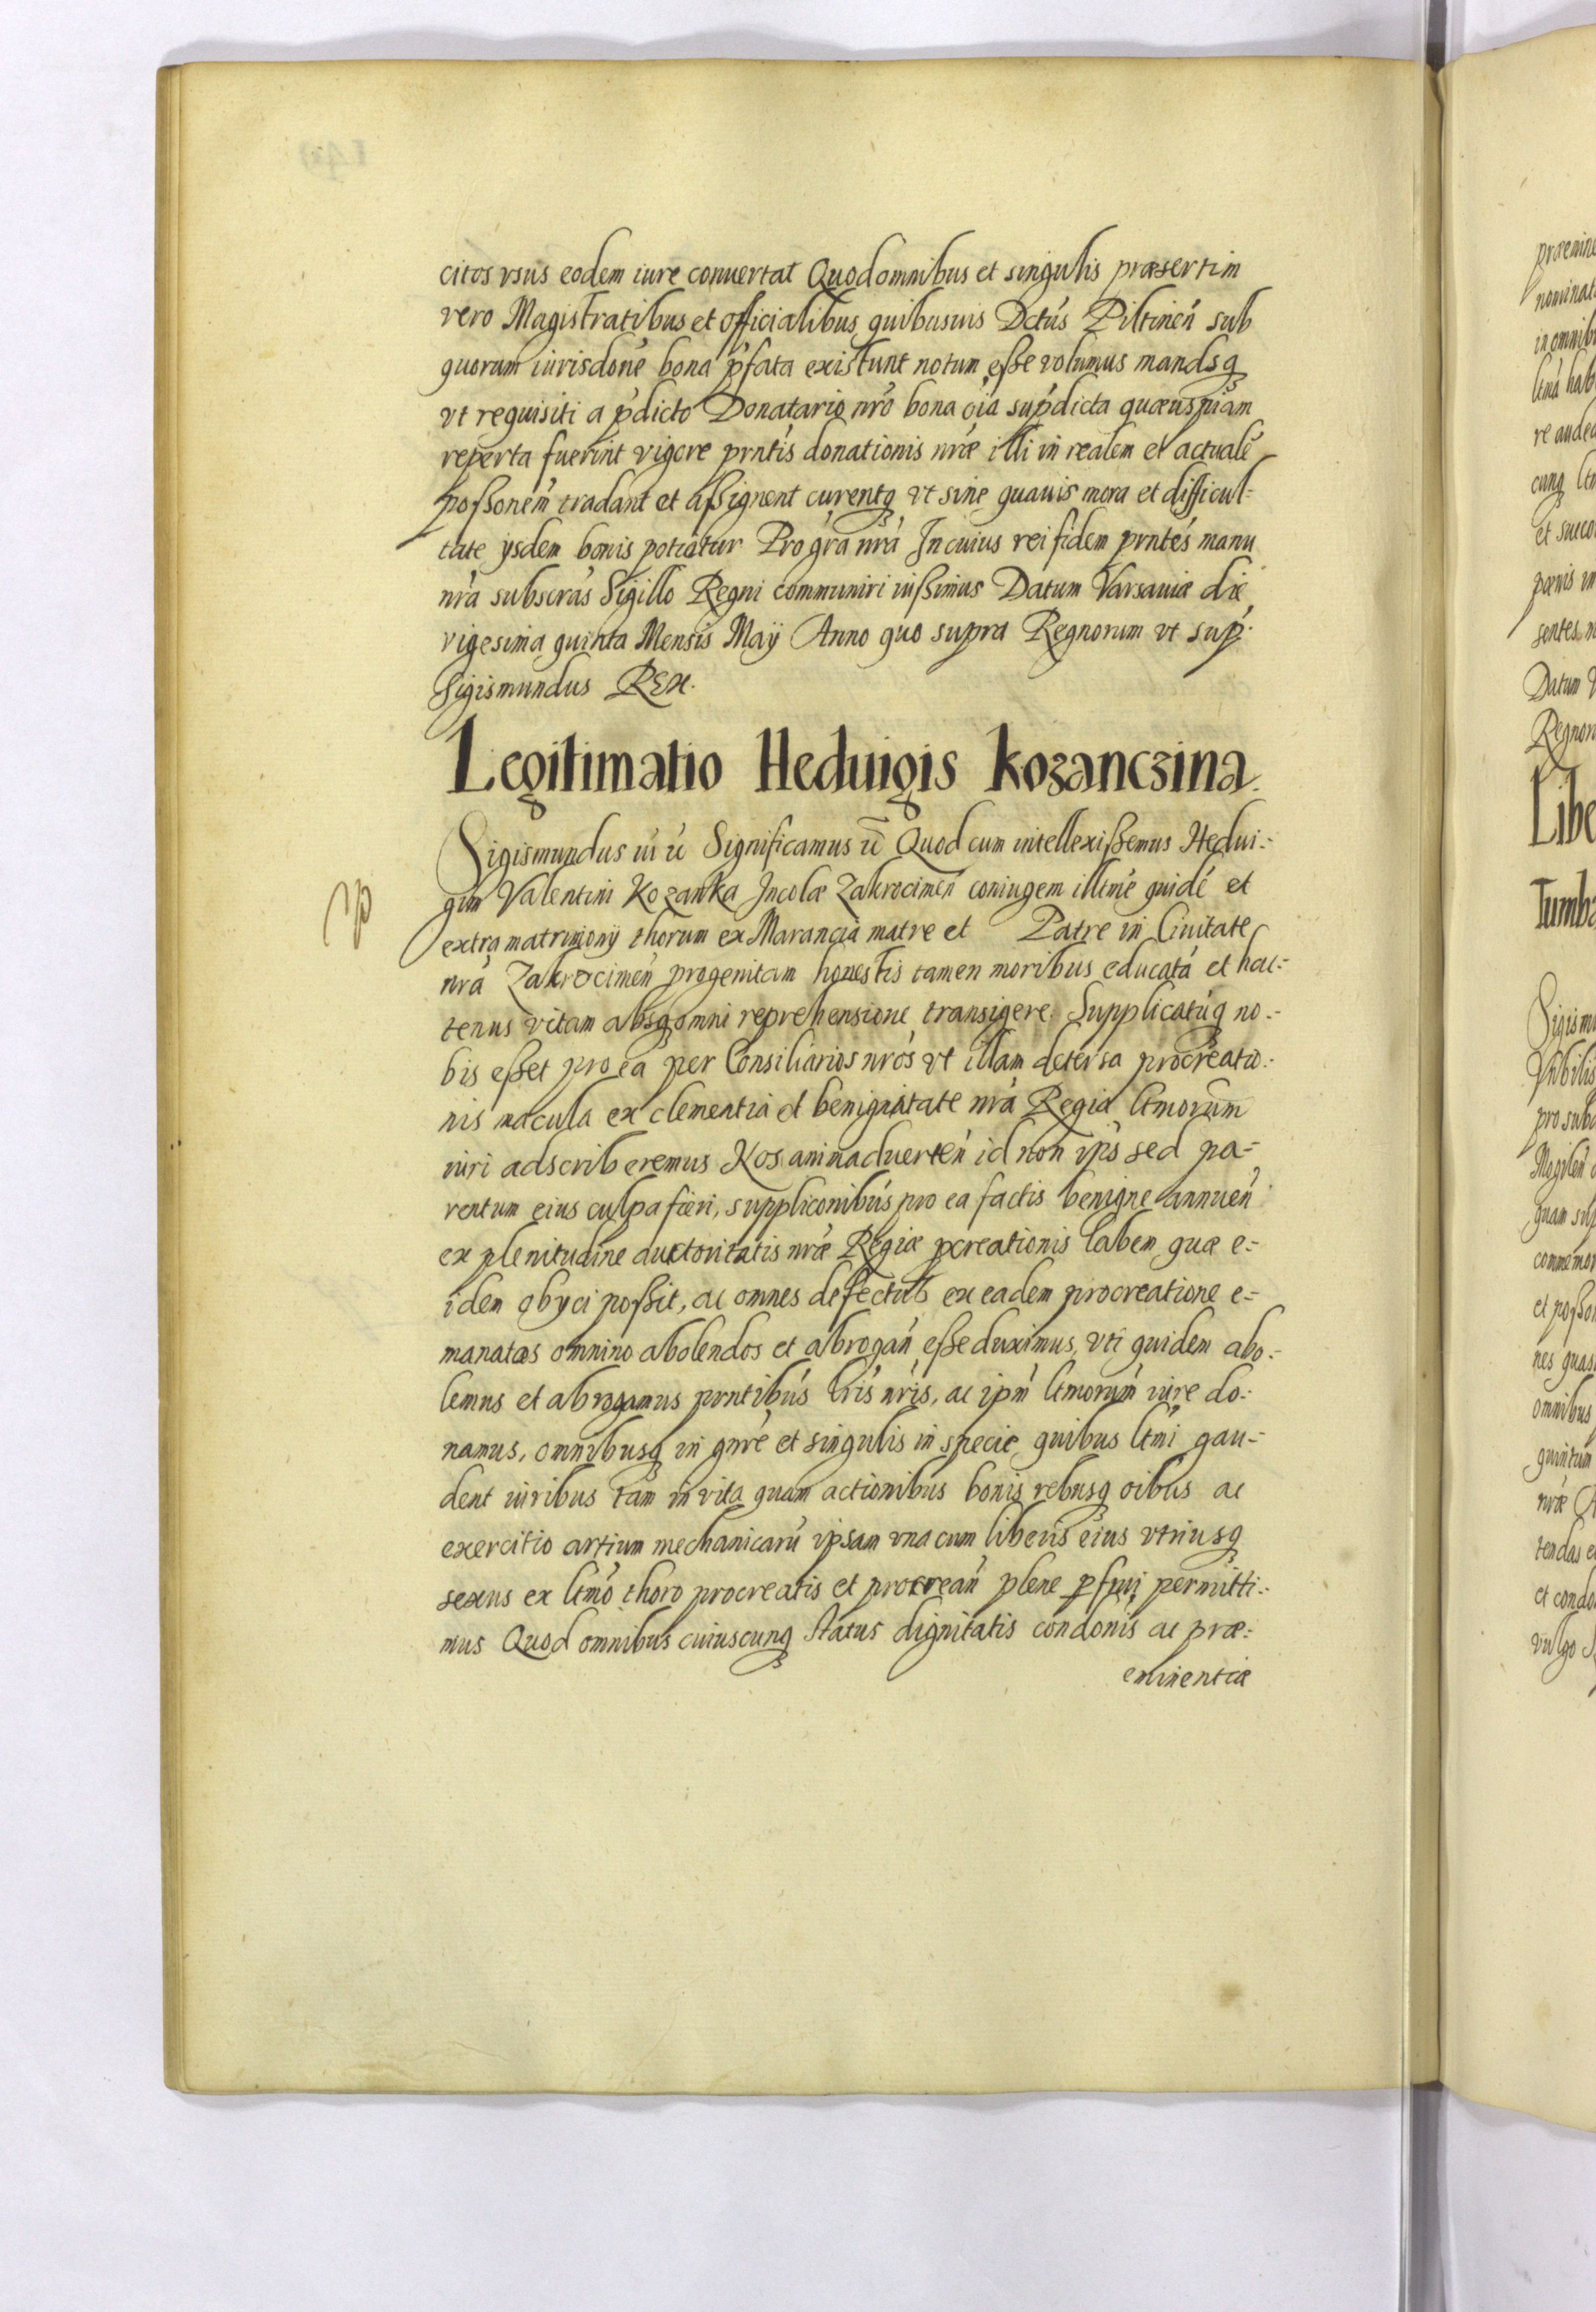 citos vsus eodem iure conuertat Quod omnibus et singulis præsertim
vero Magistratibus et officialibus quibusuis Dctús Piltineń sub
quorum iurisdońe bona p̃fata existunt notum eße volumus mandsq
vt requisiti a p̃dicto Donatario nrõ bona oĩa sup̃dicta quæuspiam
reperta fuerint vigore prntis donationis nræ illi in realem et actualẽ
poßonem̃ tradant et aßignent curentq vt sine quauis mora et difficul=
tate ysdem bonis potiatur Pro grã nrã In cuius rei fidem prntẽs manu
nrã subscrãs Sigillo Regni communiri iußimus Datum Varsauiæ die
vigesima quinta Mensis Maÿ Anno quo supra Regnorum vt sup̃.
Sigismundus REX.
Legitimatio Heduigis Kozanczina.
Sigismundus iii ũ Significamus ũ Quod cum intellexißemus Hedui=
gim Valentini Kozanka Incolæ Zakrocimeń coniugem illtme quidẽ et
extra matrimonÿ thorum ex Marancia matre et Patre in Ciuitate
nrã Zakrocimeń progenitam honestis tamen moribus educatã et hac=
tenus vitam absq omni reprehensione transigere. Supplicatũq no=
bis eßet pro ea per Consiliarios nrõs vt illam detersa procreatio=
nis macula ex clementia et benignitate nrã Regia ltmorum̃
iuri adscriberemus Nos animaduerteń id non ip̃s sed pa=
rentum eius culpa fieri, suppliconibũs pro ea factis benigne annueń
ex plenitudine auctoritatis nræ Regiæ pcreationis labem quæ e=
idem obyci poßit, ac omnes defectus ex eadem procreatione e=
manatas omnino abolendos et abrogań eße duximus, vti quidem abo=
lemus et abrogamus prntibũs lrĩs nrĩs, ac ipm̃ ltmorum̃ iure do=
namus, omnibusq in gnrẽ et singulis in specie quibus ltmĩ gau=
dent iuribus tam in vita quam actionibus bonis rebusq oibũs ac
exercitio artium mechanicarũ ipsam vna cum liberis eius vtriusq
sexus ex ltmõ thoro procreatis et procreań plene pfrui permitti=
mus Quod omnibus cuiuscunq status dignitatis condonĩs ac præ=
eminentiæ